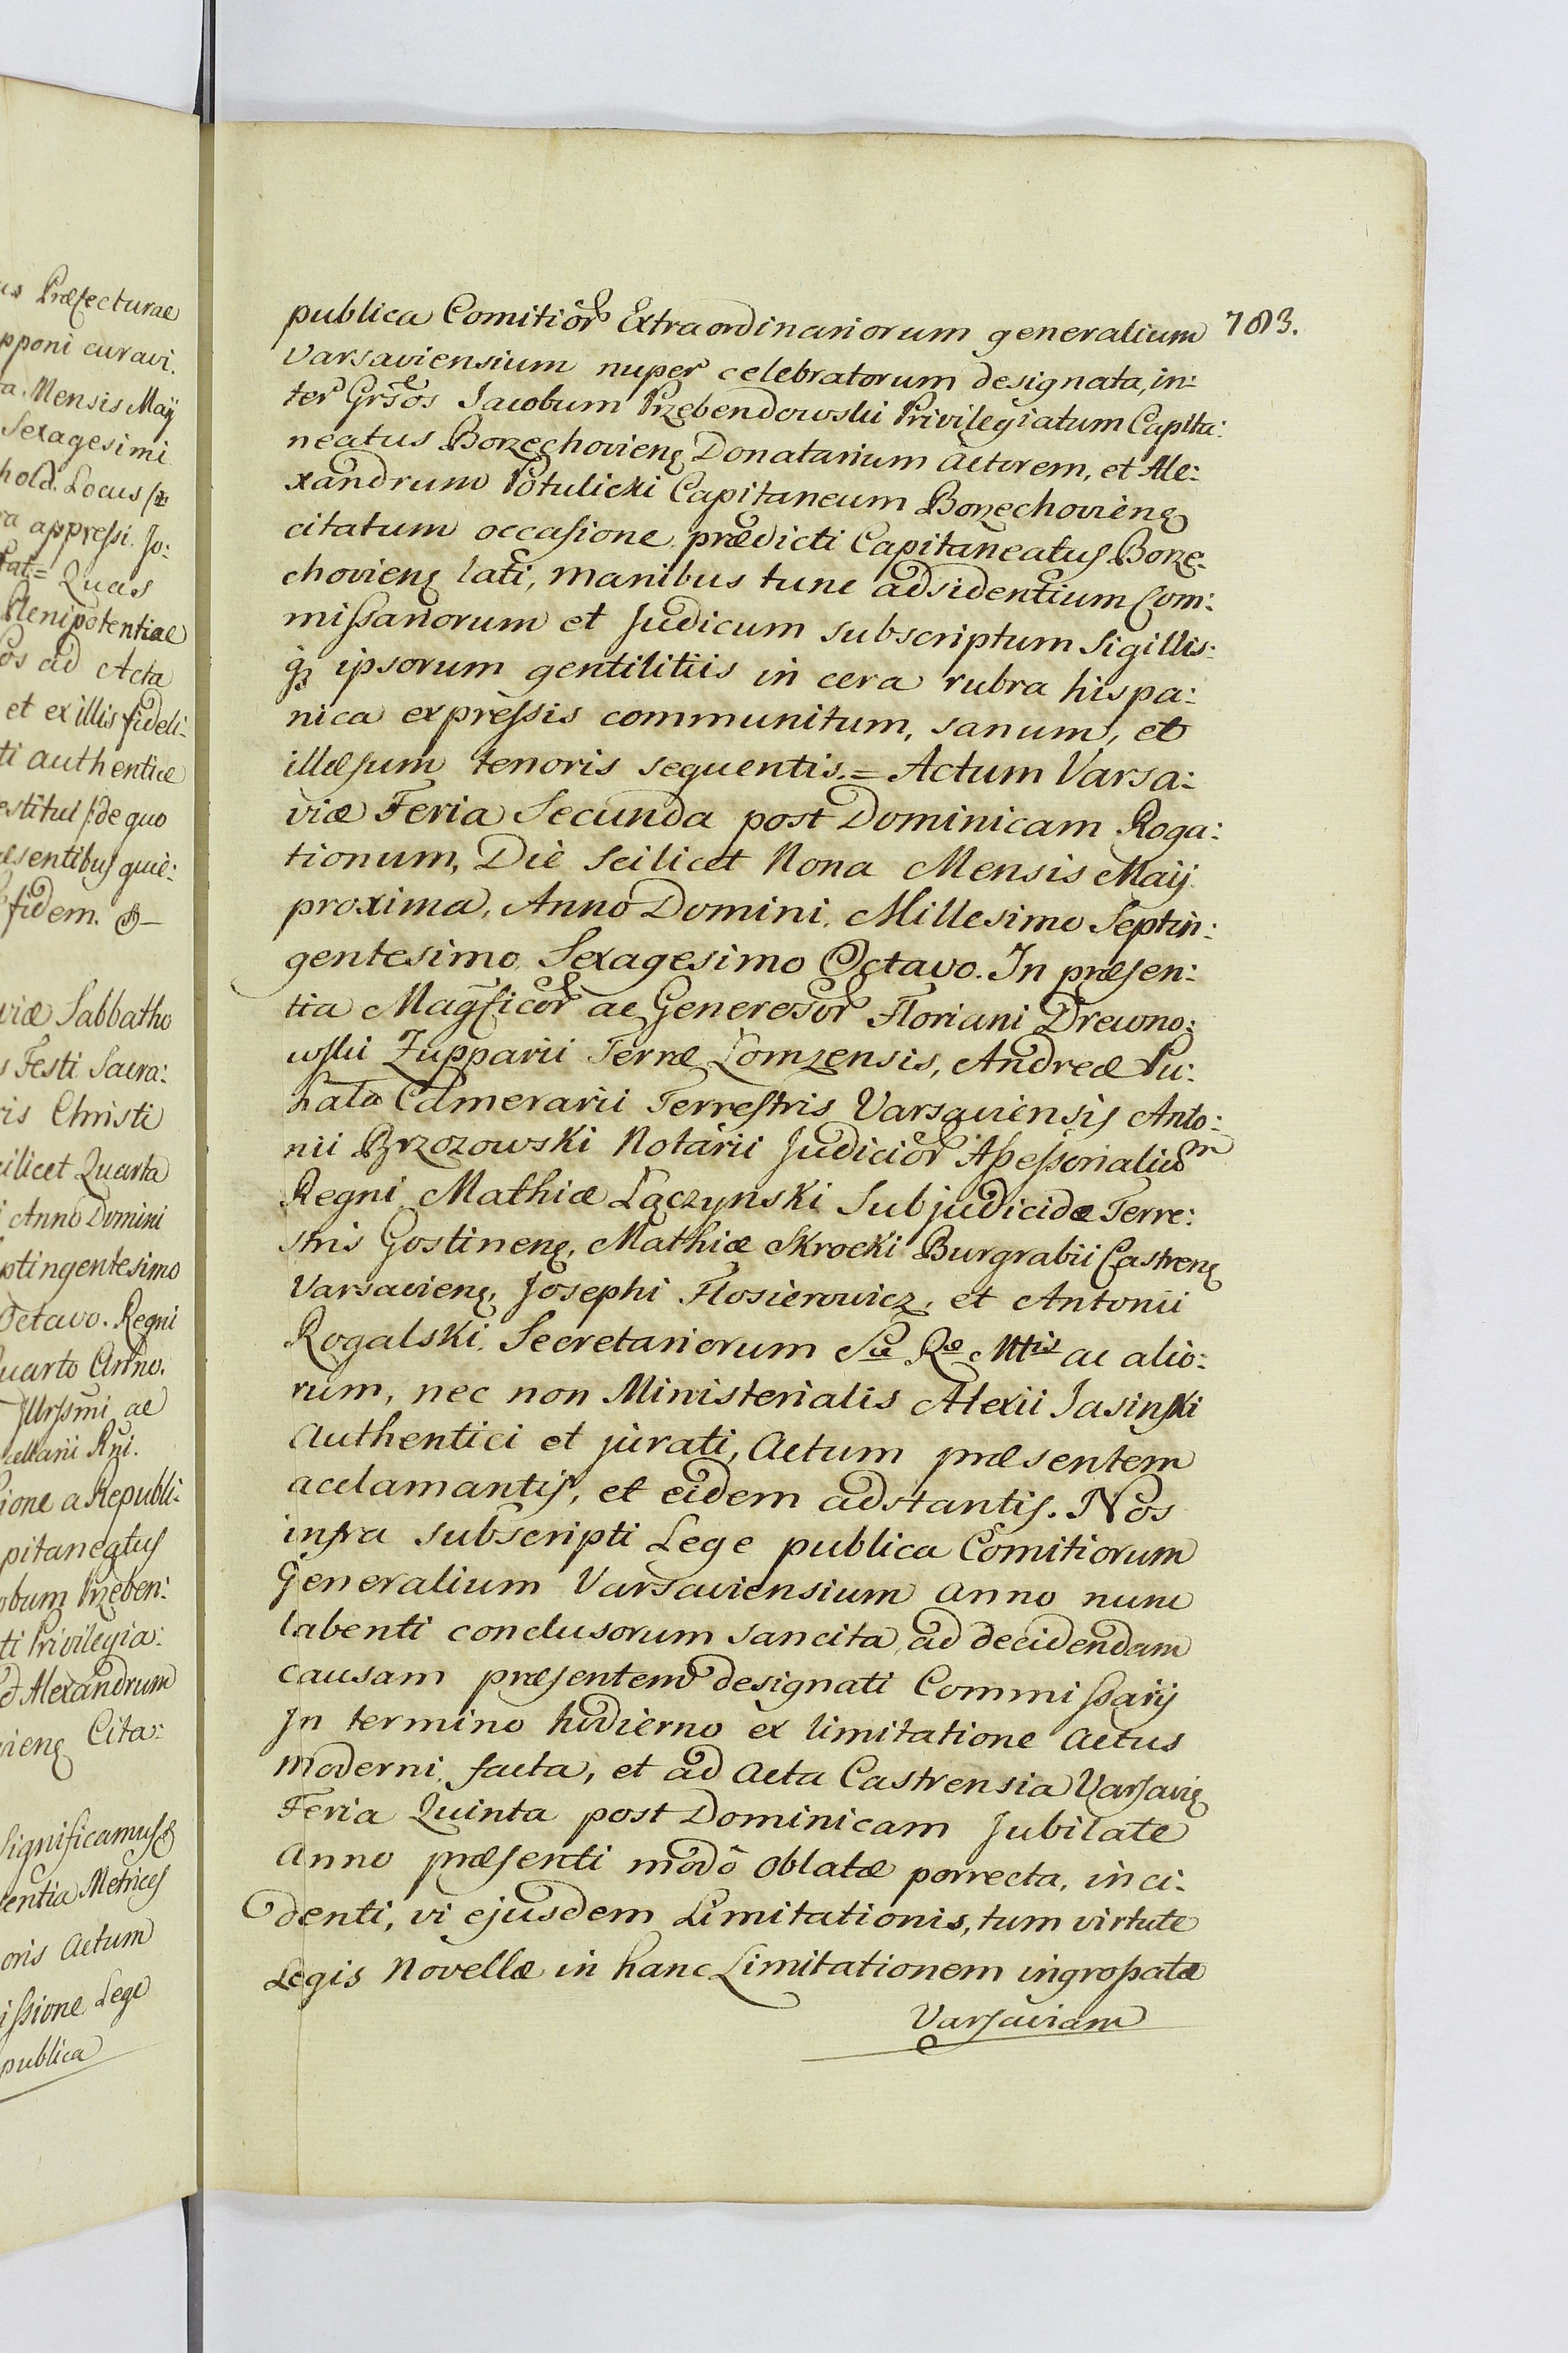 us Præfecturae
pponi curavi.
a. Mensis Maij
Sexagesimi
hold. Locus
ra appressi. Jo:
Quas
Plenipotentiae
os ad Acta
et ex illis fideli:
ti authentice
estitui de quo
æsentibus quie:
fidem. &–
viæ Sabbatho
s Festi Sacra:
ris Christi
cilicet Quarta
i Anno Domini
ptingentesimo
Octavo. Regni
uarto Anno.
Illrssmi ac
cellarii Rni.
ione a Republi:
pitaneatus
obum Przeben:
ti Privilegia:
et Alexandrum
vieng Cita:
Significamus
entia Metrices
oris Actum
issione Lege
publica
783.
publica Comitior Extraordinariorum generalium
Varsaviensium nuper celebratorum designata, in:
ter Grsos Jacobum Przebendowski Privilegiatum Capita:
neatus Borzechovieng Donatarium Actorem, et Ale:
xandrum Potulicki Capitaneum Borzechovieng
citatum occasione prædicti Capitaneatus Borze:
chovieng lati, manibus tunc adsidentium Com:
missariorum et Judicum subscriptum Sigillis:
q3 ipsorum gentilitiis in cera rubra hispa:
nica expressis communitum, sanum, et
illæsum tenoris sequentis. = Actum Varsa:
viæ Feria Secunda post Dominicam Roga:
tionum, Die scilicet Nona Mensis Maij
proxima, Anno Domini. Millesimo Septin:
gentesimo Sexagesimo Octavo. In præsen:
tia Magficor ac Generosor Floriani Drewno:
wski Zupparii Terræ Lomzensis, Andreæ Pu:
hała Camerarii Terrestris Varsaviensis Anto:
nii Brzozowski Notarii Judicior Assessorialium
Regni Mathiæ Łączynski Subjudicidæ Terre:
stris Gostineng, Mathiæ Skrocki Burgrabii Castreng
Varsavieng, Josephi Flosierowicz, et Antonii
Rogalski Secretariorum Sæ Ræ Mttis ac alio:
rum, nec non Ministerialis Alexii Jasinski
Authentici et jurati, Actum præsentem
acclamantis, et eidem adstantis. Nos
infra subscripti Lege publica Comitiorum
Generalium Varsaviensium anno nunc
labenti conclusorum sancita ad decidendam
causam præsentem designati Commissarij
In termino hodierno ex limitatione Actus
moderni facta, et ad Acta Castrensia Varsavig
Feria Quinta post Dominicam Jubilate
Anno præsenti modô Oblatæ porrecta, inci:
denti, vi ejusdem Limitationis, tum virtute
Legis Novellæ in hanc Limitationem ingrossatæ
Varsaviam